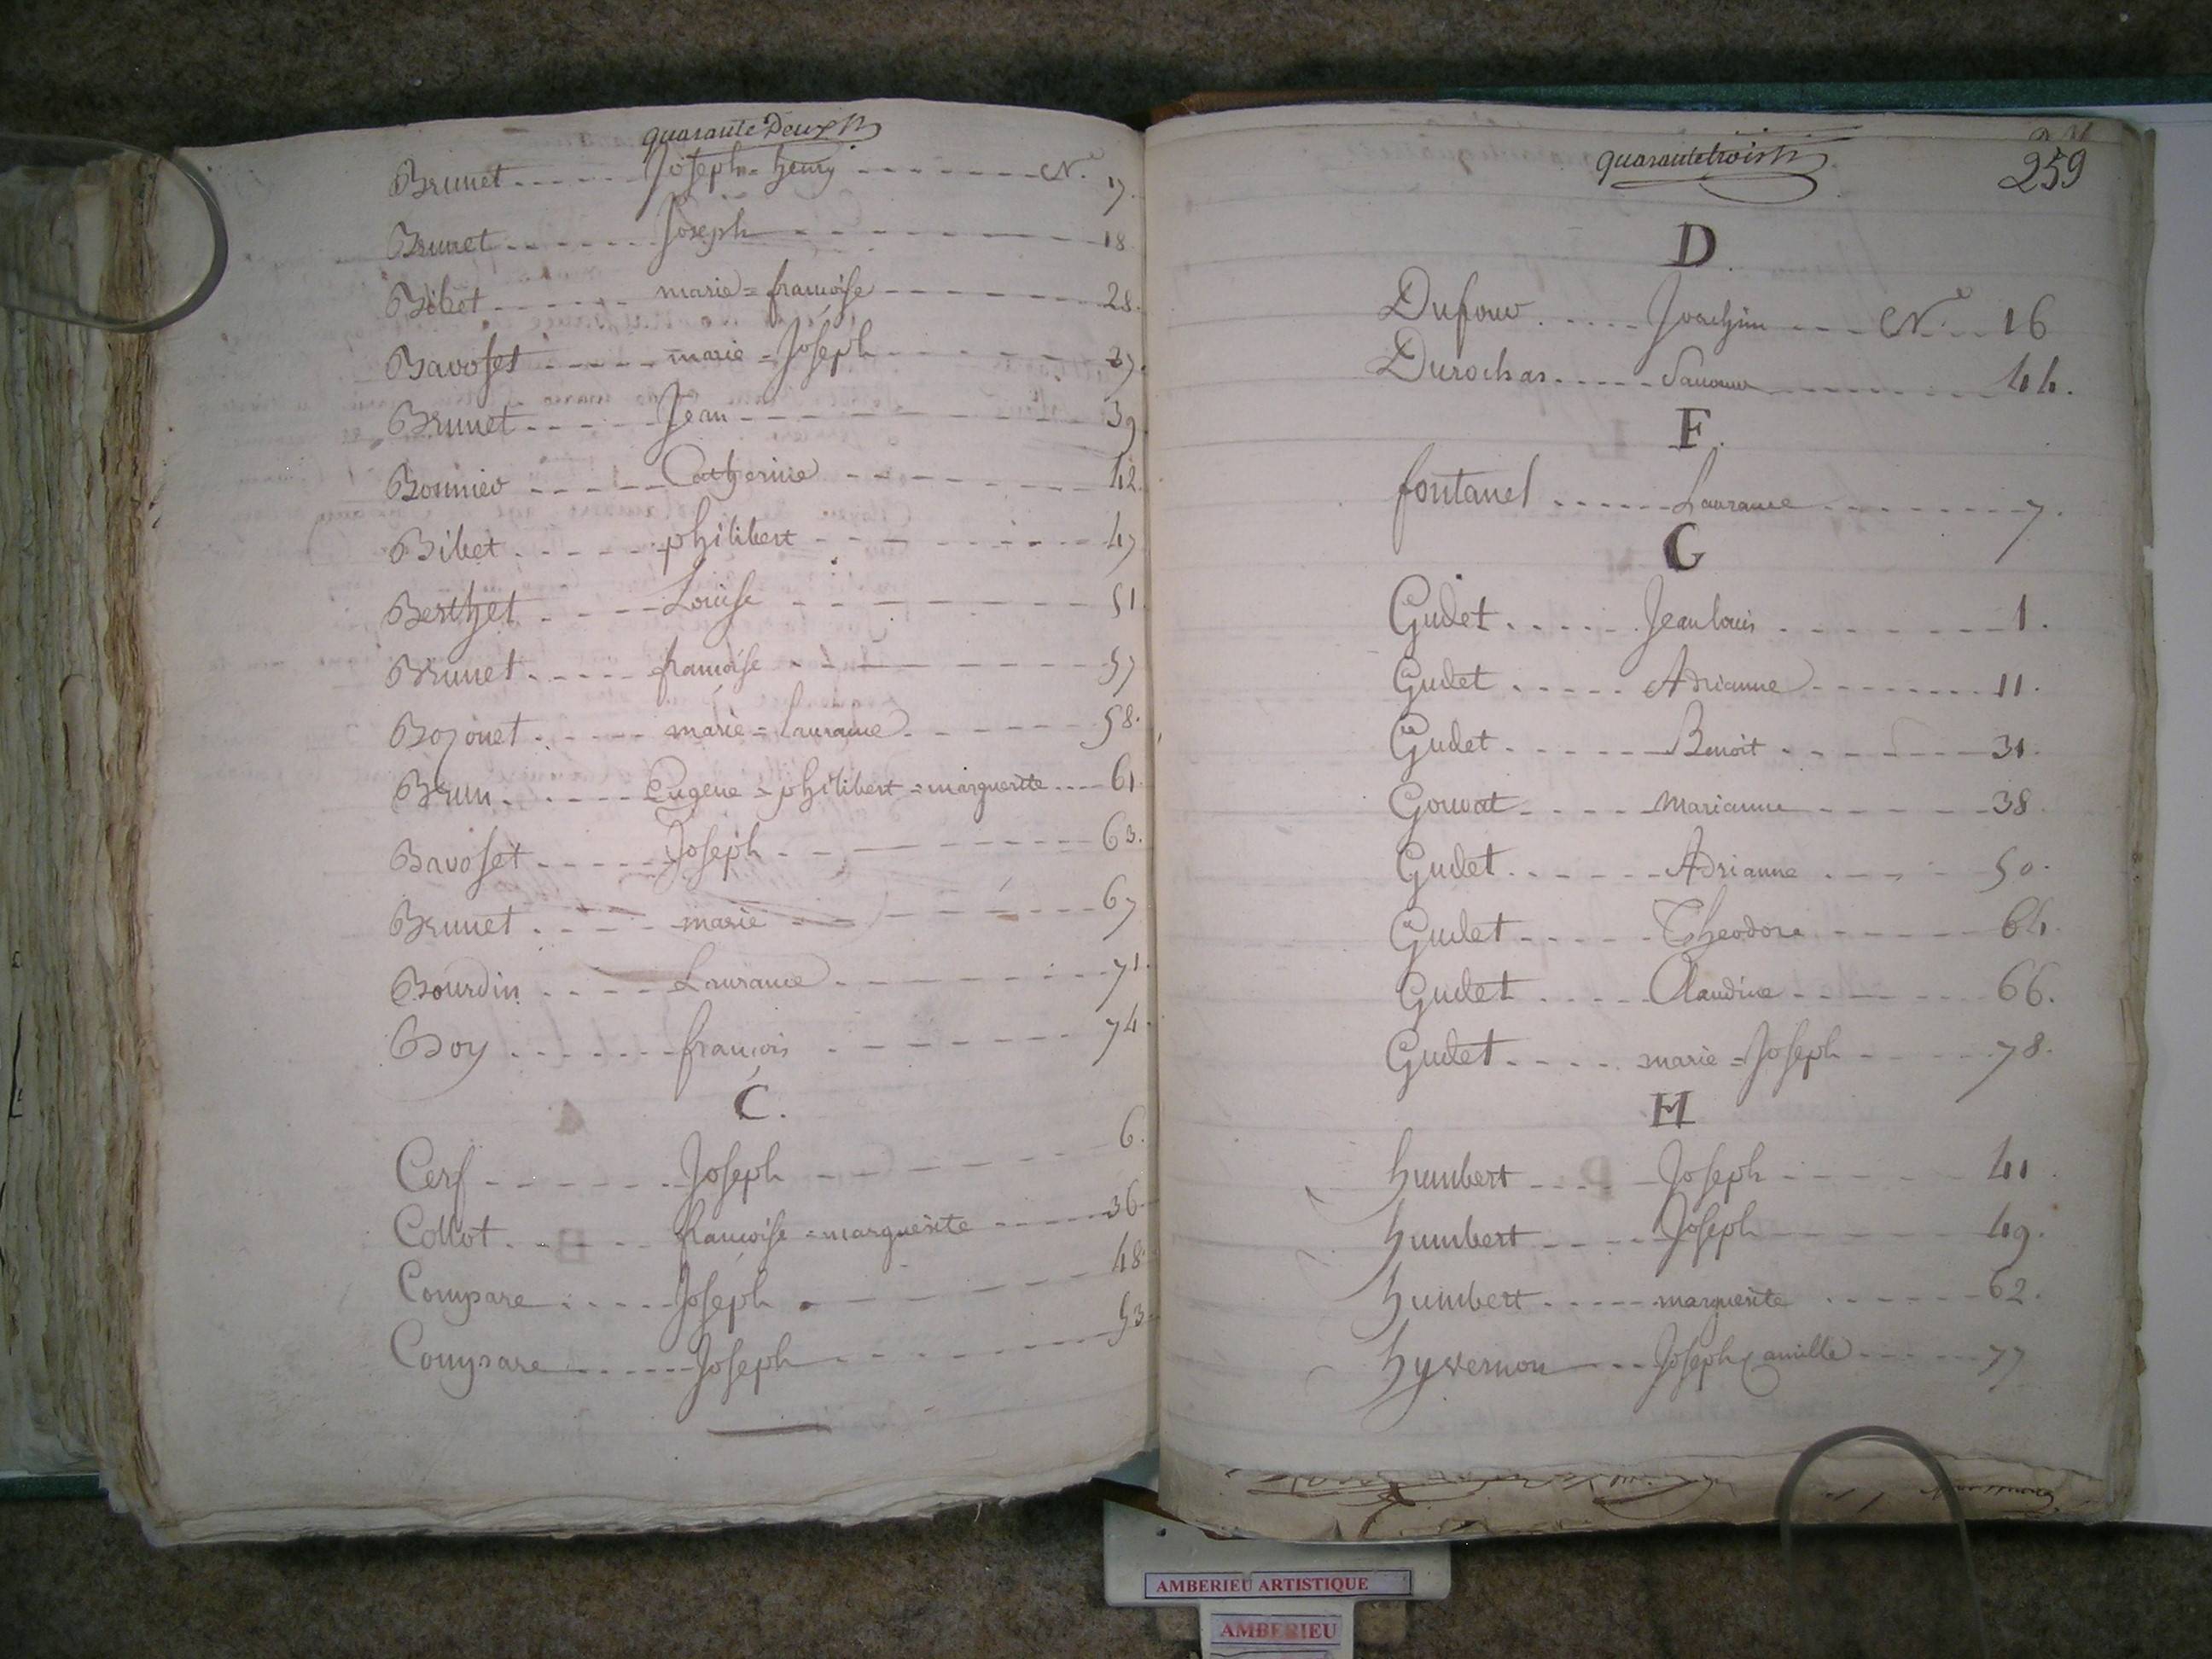 quarante Deux
Brunet Joseph = henry N.° 17.
Brunet Joseph 18
Bibet marie = francoise 28.
Bavoset marie = Joseph 37.
Brunet Jean 39
Bonnier Catherine 42.
Bibet philibert 47
Berthet Louise 51
Brunet francoise 57
Bozonet marie = Laurance 58.
Brun Eugene = philibert = marguerite 61
Bavoset Joseph 63.
Brunet marie 67
Bourdin Laurance 71.
Boy francois 74.
C.
Cerf Joseph 6.
Collot francoise = marguerite 36.
Compare Joseph 48.
Compare Joseph 53.
quarante trois
259
D.
Dufour Joachim N.° 16
Durochas 44.
F.
fontanel Laurance 7.
G
Gudet Jean louis 1.
Gudet Adrianne 11.
Gudet Benoit 31.
Gouvat Marianne 38
Gudet Adrianne 50.
Gudet Theodore 64.
Gudet Claudine 66.
Gudet marie = Joseph 78.
H
humbert Joseph 41.
humbert Joseph 49.
humbert marguerite 62.
hyvernon Joseph Camille 77
AMBERIEU ARTISTIQUE
AMBERIEU